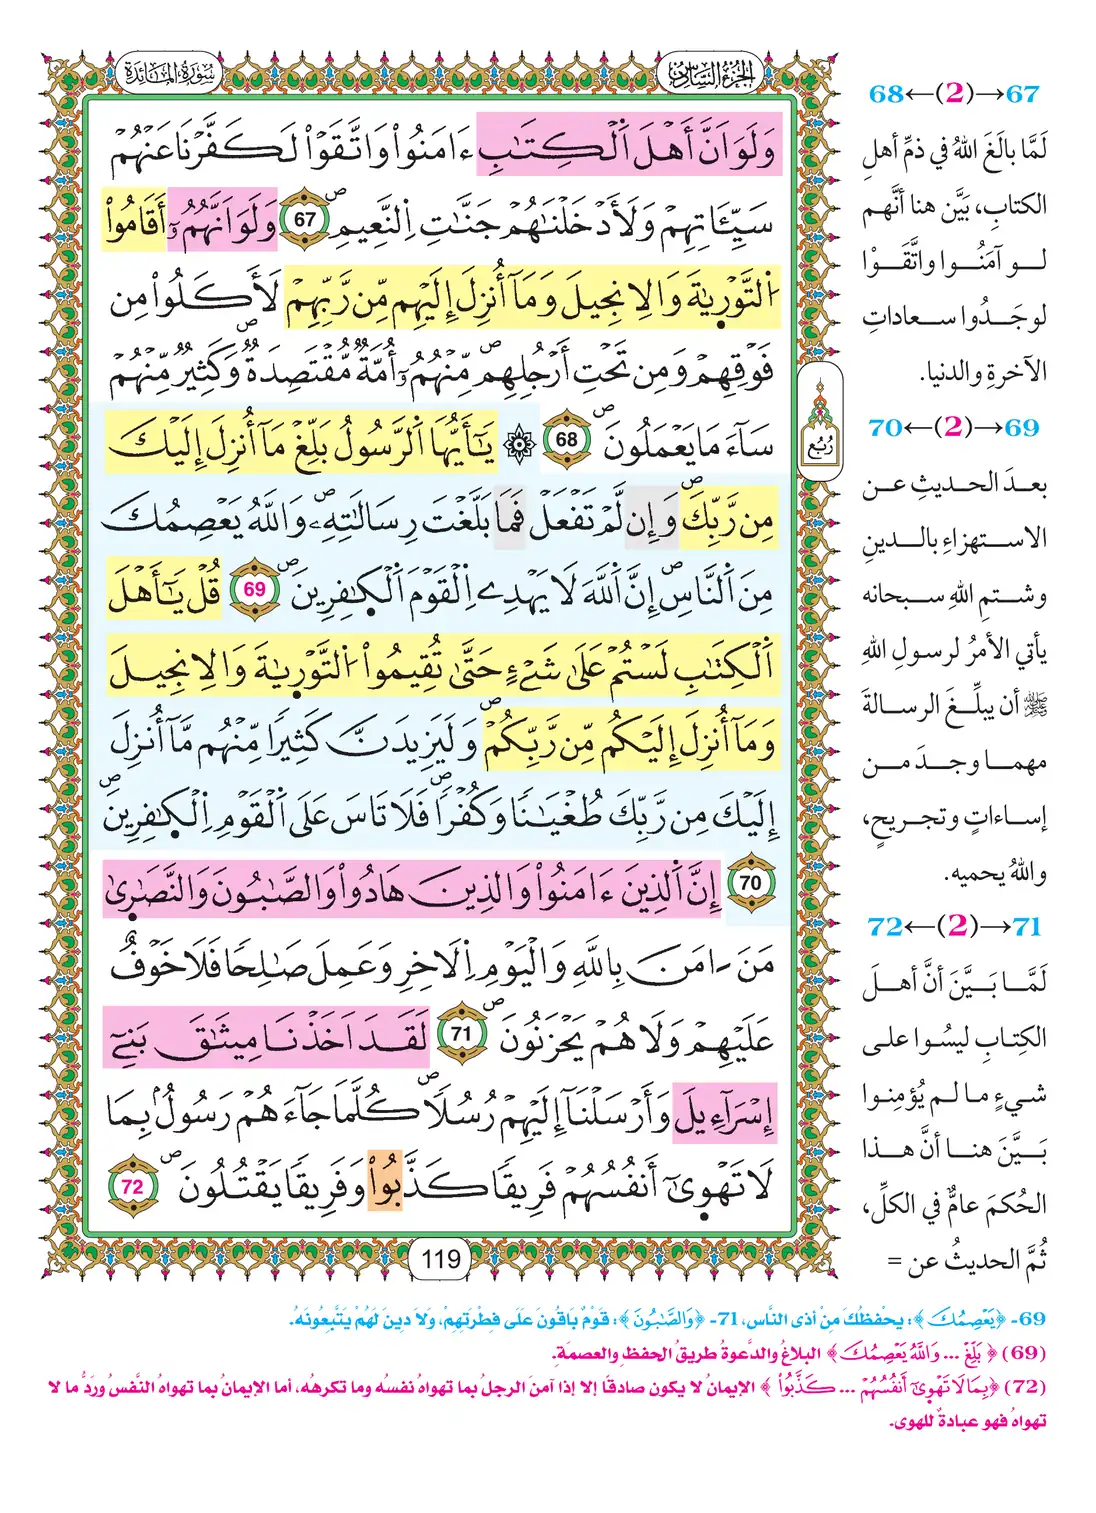 الجزء السادس
سورة المائدة
وَلَوَ اَنَّ أَهْلَ اَلْكِتَٰبِ ءَامَنُواْ وَاتَّقَوْاْ لَكَفَّرْنَا عَنْهُمْ
سَيِّـَٔاتِهِمْ وَلَأَدْخَلْنَٰهُمْ جَنَّٰتِ اِ۬لنَّعِيمِۖ 67 وَلَوَ اَنَّهُمُۥٓ أَقَامُواْ
اُ۬لتَّوْر۪يٰةَ وَالِانجِيلَ وَمَآ أُنزِلَ إِلَيْهِم مِّن رَّبِّهِمْ لَأَكَلُواْ مِن
فَوْقِهِمْ وَمِن تَحْتِ أَرْجُلِهِمۖ مِّنْهُمُۥٓ أُمَّةٞ مُّقْتَصِدَةٞۖ وَكَثِيرٞ مِّنْهُمْ
سَآءَ مَا يَعْمَلُونَۖ 68 ۞ يَٰٓأَيُّهَا اَ۬لرَّسُولُ بَلِّغْ مَآ أُنزِلَ إِلَيْكَ
مِن رَّبِّكَۖ وَإِن لَّمْ تَفْعَلْ فَمَا بَلَّغْتَ رِسَالَٰتِهِۦۖ وَاللَّهُ يَعْصِمُكَ
مِنَ اَ۬لنَّاسِۖ إِنَّ اَ۬للَّهَ لَا يَهْدِے اِ۬لْقَوْمَ اَ۬لْكٰ۪فِرِينَۖ 69 قُلْ يَٰٓأَهْلَ
اَ۬لْكِتَٰبِ لَسْتُمْ عَلَىٰ شَےْءٍ حَتَّىٰ تُقِيمُواْ اُ۬لتَّوْر۪يٰةَ وَالِانجِيلَ
وَمَآ أُنزِلَ إِلَيْكُم مِّن رَّبِّكُمْۖ وَلَيَزِيدَنَّ كَثِيرٗا مِّنْهُم مَّآ أُنزِلَ
إِلَيْكَ مِن رَّبِّكَ طُغْيَٰنٗا وَكُفْرٗاۖ فَلَا تَاسَ عَلَى اَ۬لْقَوْمِ اِ۬لْكٰ۪فِرِينَۖ
70 إِنَّ اَ۬لذِينَ ءَامَنُواْ وَالذِينَ هَادُواْ وَالصَّٰبُونَ وَالنَّصَٰر۪ىٰ
مَنَ اٰمَنَ بِاللَّهِ وَالْيَوْمِ اِ۬لَاخِرِ وَعَمِلَ صَٰلِحٗا فَلَا خَوْفٌ
عَلَيْهِمْ وَلَا هُمْ يَحْزَنُونَۖ 71 لَقَدَ اَخَذْنَا مِيثَٰقَ بَنِےٓ
إِسْرَآءِيلَ وَأَرْسَلْنَآ إِلَيْهِمْ رُسُلٗاۖ كُلَّمَا جَآءَهُمْ رَسُولُۢ بِمَا
لَا تَهْو۪ىٰٓ أَنفُسُهُمْ فَرِيقٗا كَذَّبُواْ وَفَرِيقٗا يَقْتُلُونَۖ 72
ربع
119
67→(2)←68
لَمَّا بالَغَ اللهُ في ذمِّ أهلِ
الكتابِ، بَيَّن هنا أنَّهم
لو آمَنُوا واتَّقَوْا
لوجَدُوا سعاداتِ
الآخرةِ والدنيا.
69→(2)←70
بعدَ الحديثِ عن
الاستهزاءِ بالدينِ
وشتمِ اللهِ سبحانه
يأتي الأمرُ لرسولِ اللهِ
ﷺ أن يبلِّغَ الرسالةَ
مهما وجدَ من
إساءاتٍ وتجريحٍ،
واللهُ يحميه.
71→(2)←72
لَمَّا بَيَّنَ أنَّ أهلَ
الكِتابِ ليسُوا على
شيءٍ ما لم يُؤمِنوا
بَيَّنَ هنا أنَّ هذا
الحُكمَ عامٌّ في الكلِّ،
ثُمَّ الحديثُ عن =
69- ﴿يَعْصِمُكَ﴾: يحْفظُكَ مِنْ أذى النَّاسِ، 71- ﴿وَالصَّٰبُونَ﴾: قَوْمٌ بَاقُونَ عَلَى فِطْرَتِهِمْ، وَلاَ دِينَ لَهُمْ يَتَّبِعُونَهُ.
(69) ﴿بَلِّغْ ... وَاللَّهُ يَعْصِمُكَ﴾ البلاغُ والدَّعوةُ طريقُ الحفظِ والعصمةِ.
(72) ﴿بِمَا لَا تَهْو۪ىٰٓ أَنفُسُهُمْ ... كَذَّبُواْ﴾ الإيمانُ لا يكون صادقًا إلا إذا آمنَ الرجلُ بما تهواهُ نفسُه وما تكرهُه، أما الإيمانُ بما تهواهُ النَّفسُ وردُّ ما لا
تهواهُ فهو عبادةٌ للهوى.